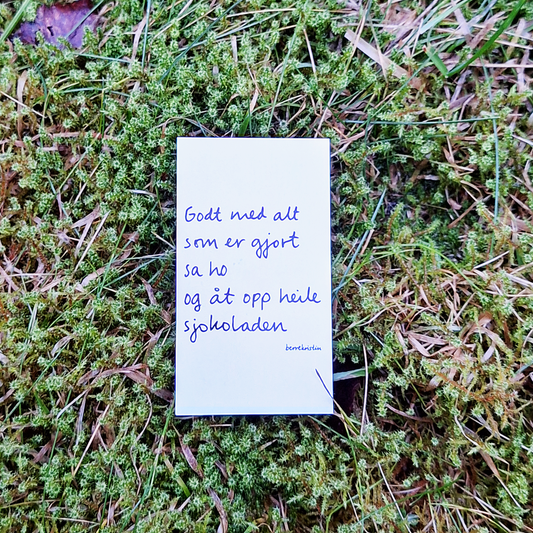 Godt med alt
som er gjort
sa ho
og åt opp heile
sjokoladen
berrekristin